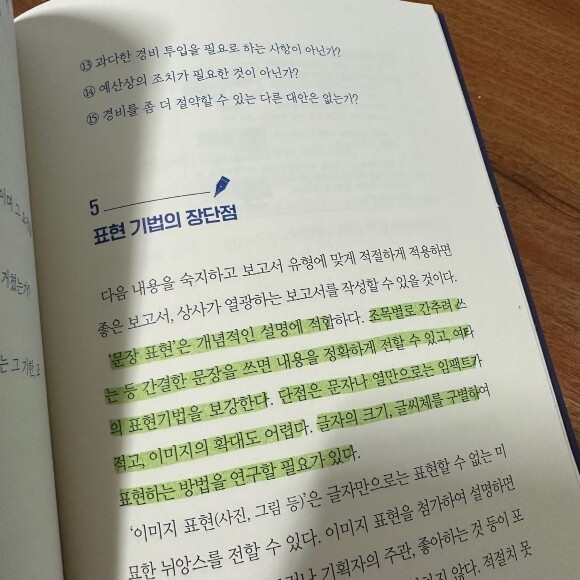 ⑬ 과다한 경비 투입을 필요로 하는 사항이 아닌가?
⑭ 예산상의 조치가 필요한 것이 아닌가?
⑮ 경비를 좀 더 절약할 수 있는 다른 대안은 없는가?
5
표현 기법의 장단점
다음 내용을 숙지하고 보고서 유형에 맞게 적절하게 적용하면
좋은 보고서, 상사가 열광하는 보고서를 작성할 수 있을 것이다.
'문장 표현'은 개념적인 설명에 적합하다. 조목별로 간추려 쓰
는 등 간결한 문장을 쓰면 내용을 정확하게 전할 수 있고, 여타
의 표현기법을 보강한다. 단점은 문자나 열만으로는 임팩트가
적고, 이미지의 확대도 어렵다. 글자의 크기, 글씨체를 구별하여
표현하는 방법을 연구할 필요가 있다.
'이미지 표현(사진, 그림 등)'은 글자만으로는 표현할 수 없는 미
묘한 뉘앙스를 전할 수 있다. 이미지 표현을 첨가하여 설명하면
기획자의 주관, 좋아하는 것 등이 포
않다. 적절치 못
이며 그
거쳤는가?
는 그 기한, 조